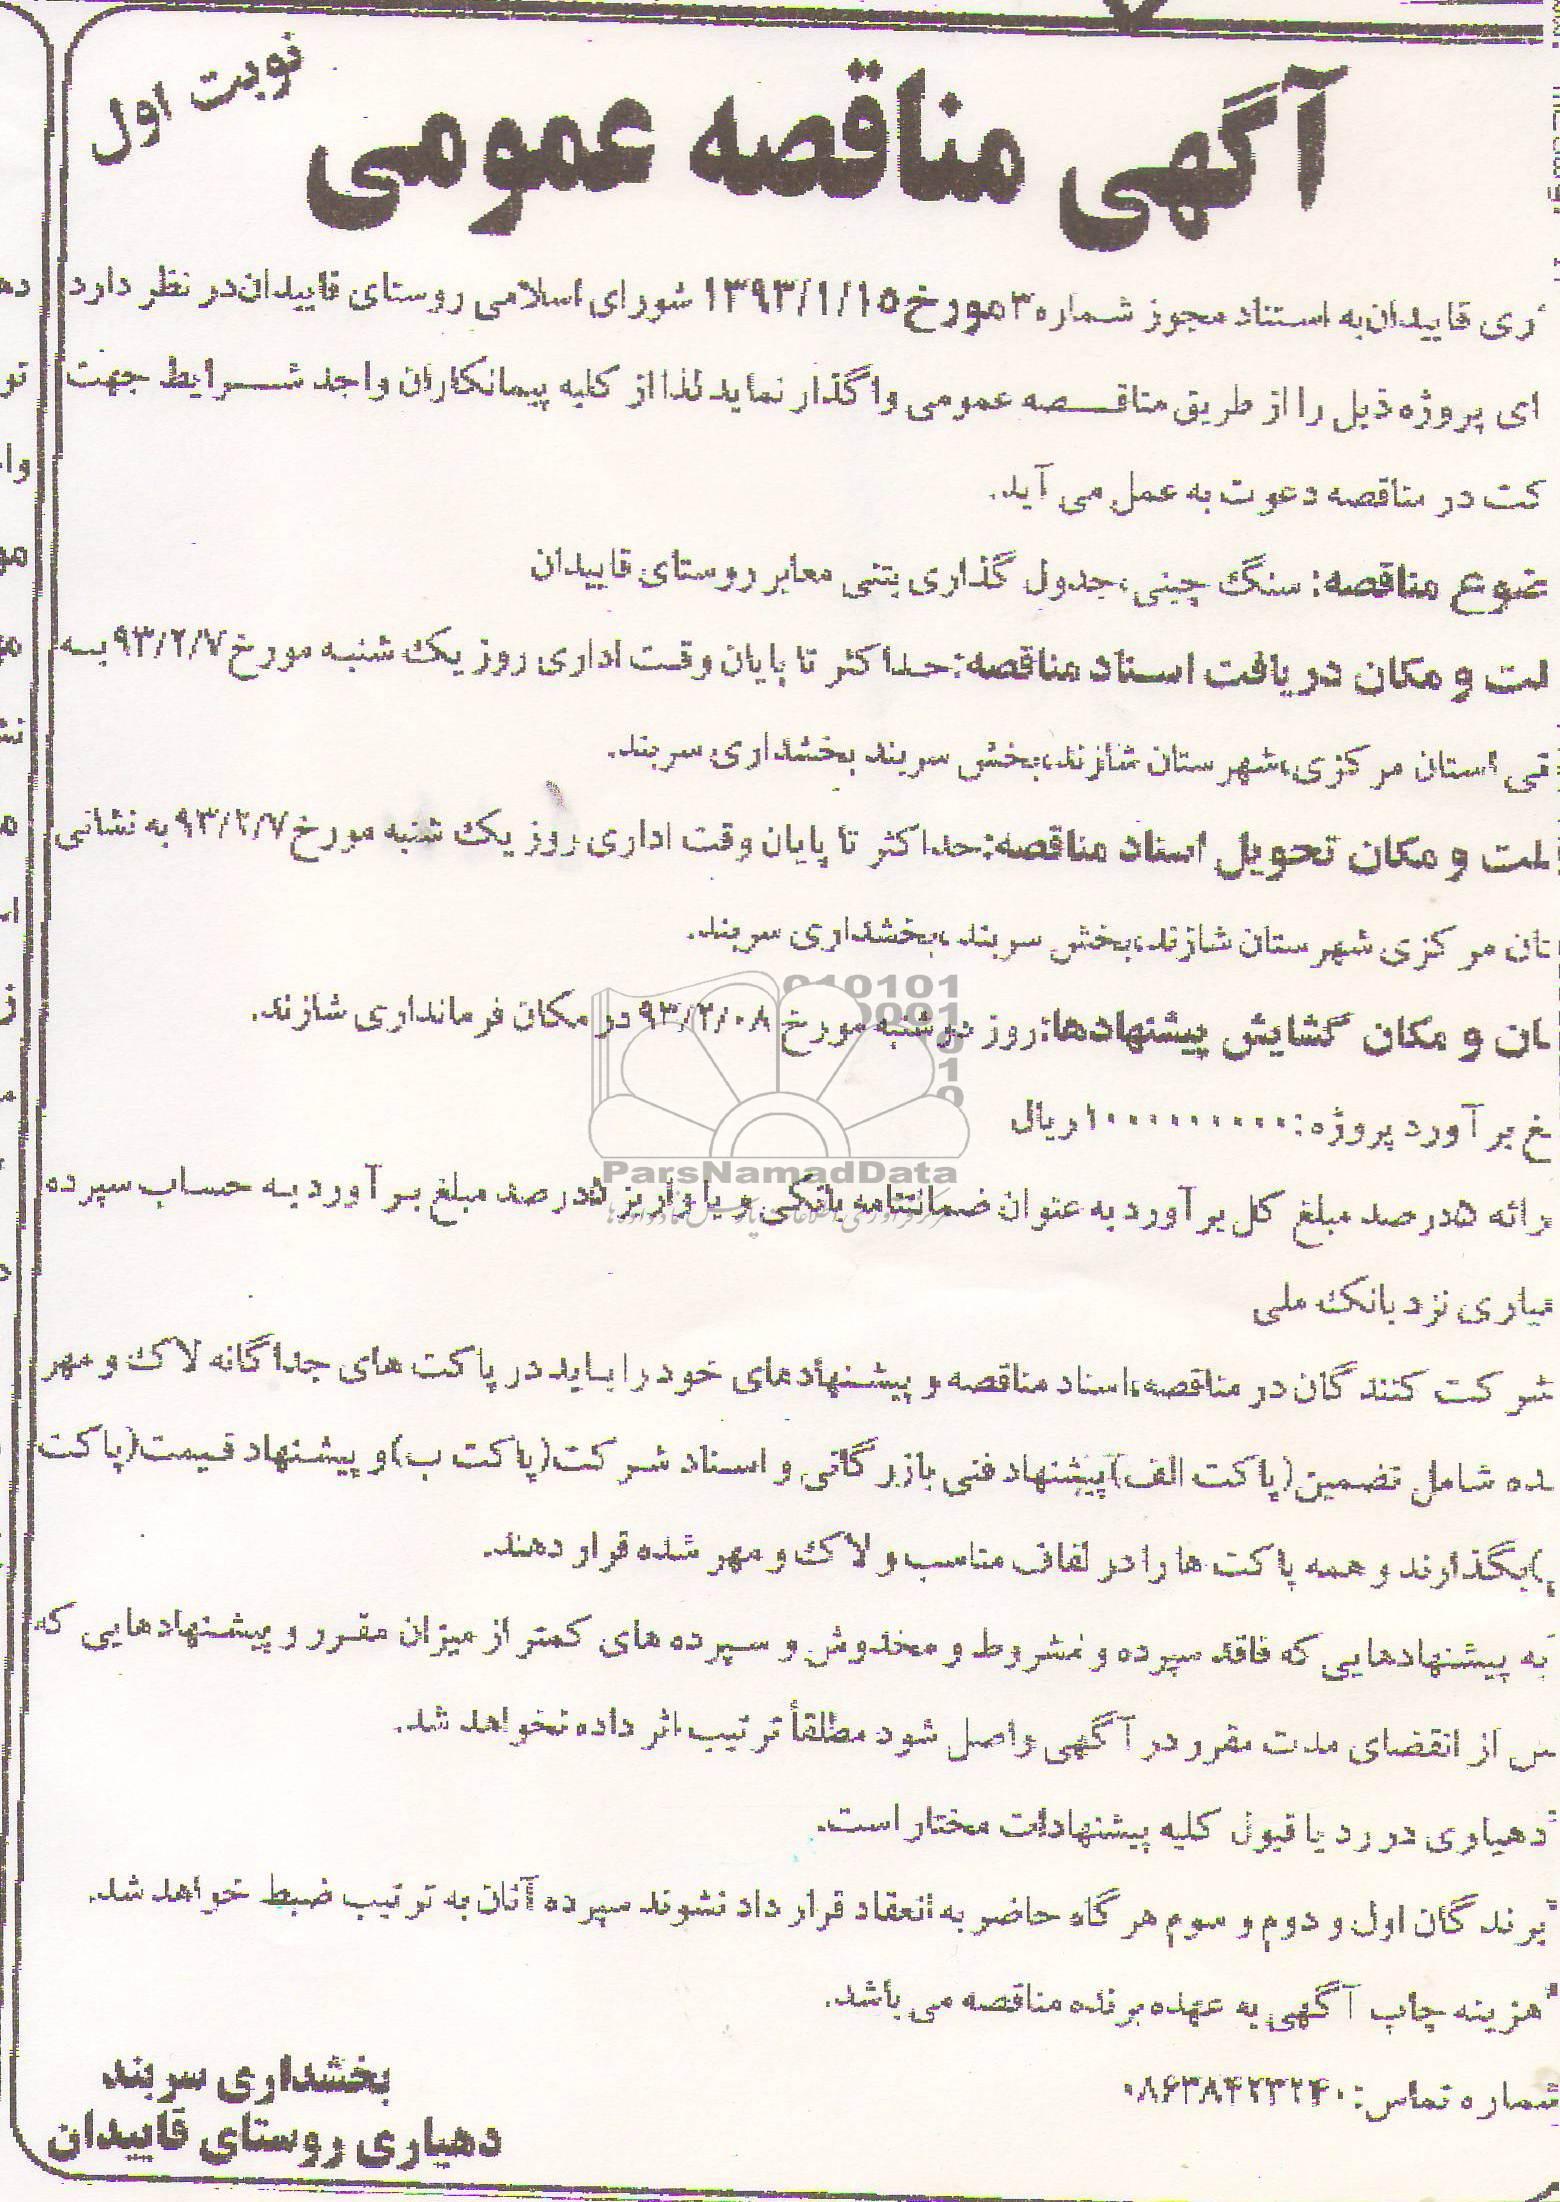 نوبت اول
آگهی مناقصه عمومی
ری قاییدان به استناد مجوز شماره ۳ مورخ ۱۳۹۳/۱/۱۵ شورای اسلامی روستای قاییدان در نظر دارد
ای پروژه ذیل را از طریق مناقصه عمومی واگذار نماید لذا از کلیه پیمانکاران واجد شرایط جهت
کت در مناقصه دعوت به عمل می آید.
ضوع مناقصه: سنگ چینی، جدول گذاری بتنی معابر روستای قاییدان
لت و مکان دریافت اسناد مناقصه: حداکثر تا پایان وقت اداری روز یک شنبه مورخ ۹۳/۲/۷ به
نی استان مرکزی، شهرستان شازند، بخش سربند بخشداری سربند.
لت و مکان تحویل اسناد مناقصه: حداکثر تا پایان وقت اداری روز یک شنبه مورخ ۹۳/۲/۷ به نشانی
تان مرکزی شهرستان شازند، بخش سربند، بخشداری سربند.
ان و مکان گشایش پیشنهادها: روز دوشنبه مورخ ۹۳/۲/۰۸ در مکان فرمانداری شازند.
غ برآورد پروژه: ۱۰۰۰۰۰۰۰۰۰ ریال
رائه ۵ درصد مبلغ کل برآورد به عنوان ضمانتنامه بانکی و یا واریز ۵ درصد مبلغ برآورد به حساب سپرده
یاری نزد بانک ملی
شرکت کنندگان در مناقصه، اسناد مناقصه و پیشنهادهای خود را باید در پاکت های جداگانه لاک و مهر
ده شامل تضمین (پاکت الف) پیشنهاد فنی بازرگانی و اسناد شرکت (پاکت ب) و پیشنهاد قیمت (پاکت
) بگذارند و همه پاکت ها را در لفاف مناسب و لاک و مهر شده قرار دهند.
به پیشنهادهایی که فاقد سپرده و مشروط و مخدوش و سپرده های کمتر از میزان مقرر و پیشنهادهایی که
س از انقضای مدت مقرر در آگهی واصل شود مطلقاً ترتیب اثر داده نخواهد شد.
دهیاری در رد یا قبول کلیه پیشنهادات مختار است.
برندگان اول و دوم و سوم هرگاه حاضر به انعقاد قرار داد نشوند سپرده آنان به ترتیب ضبط خواهد شد.
هزینه چاپ آگهی به عهده برنده مناقصه می باشد.
شماره تماس: ۰۸۶۳۸۴۲۳۲۴۰
بخشداری سربند
دهیاری روستای قاییدان
ParsNamadData